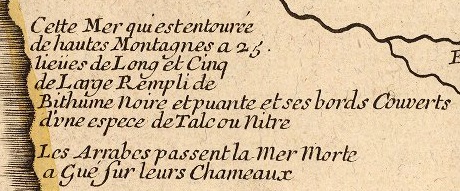 Cette Mer qui est entourée
de hautes Montagnes a 25.
lieües de Long et Cinq
de Large Rempli de
Bithume Noire et puante et ses bords Couverts
d'vne espece de Talc ou Nitre
Les Arrabes passent la Mer Morte
a Gué sur leurs Chameaux